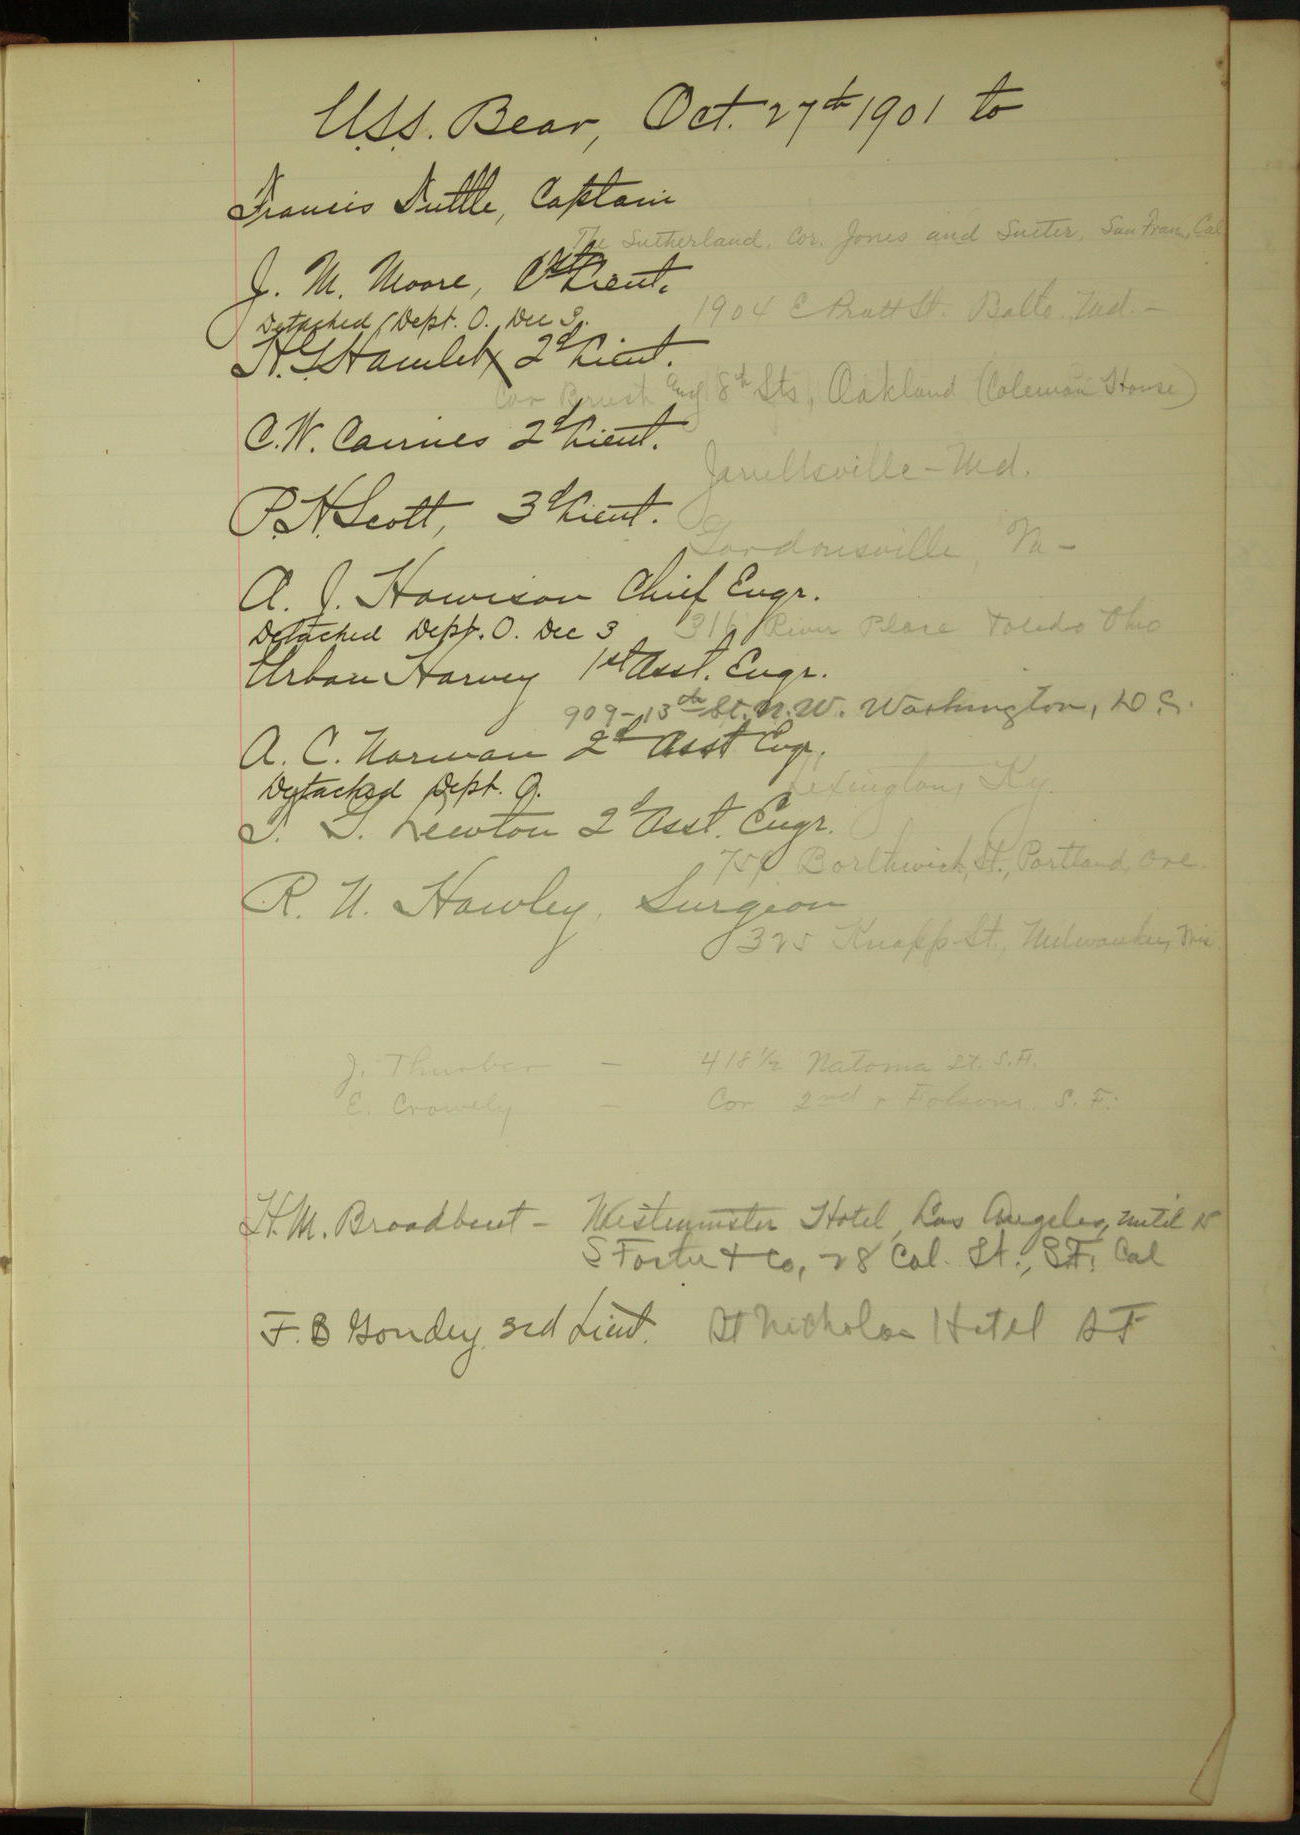 U.S.S. Bear, Oct. 27th 1901 to
Francis Tuttle, Captain
The Sutherland, Cor. Jones and Sutter, San Fran, Cal
J. M. Moore, 1st Lieut.
1904 E Pratt St. Balto. Md. -
Detached Dept. O. Dec 3.
H. G. Hamlet 2d Lieut.
Cor Brush and 8th Sts, Oakland (Coleman House)
C. W. Cairnes 2d Lieut.
Jarrettsville - Md.
P. H. Scott, 3d Lieut.
Gordonsville, Va -
A. J. Howison Chief Engr.
316 River Place Toledo Ohio
Detached Dept. O. Dec 3
Urban Harvey 1st Asst. Engr.
909 - 13th St. N.W. Washington, D.C.
A. C. Norman 2d Asst Engr.
Lexington, Ky.
Detached Dept. O.
Lewton 2d Asst. Engr.
Borthwick St., Portland, Ore.
R. N. Hawley, Surgeon
325 Knapp St., Milwaukee, Wis
J. Thurber - 418 1/2 Natoma St. S.F.
E. Crowely - Cor 2nd & Folsom. S. F.
H. M. Broadbent - Westminster Hotel, Los Angeles, until
S Foster & Co, 28 Cal. St., S.F. Cal
F. B Goudey 3rd Lieut. St Nicholas Hotel S F